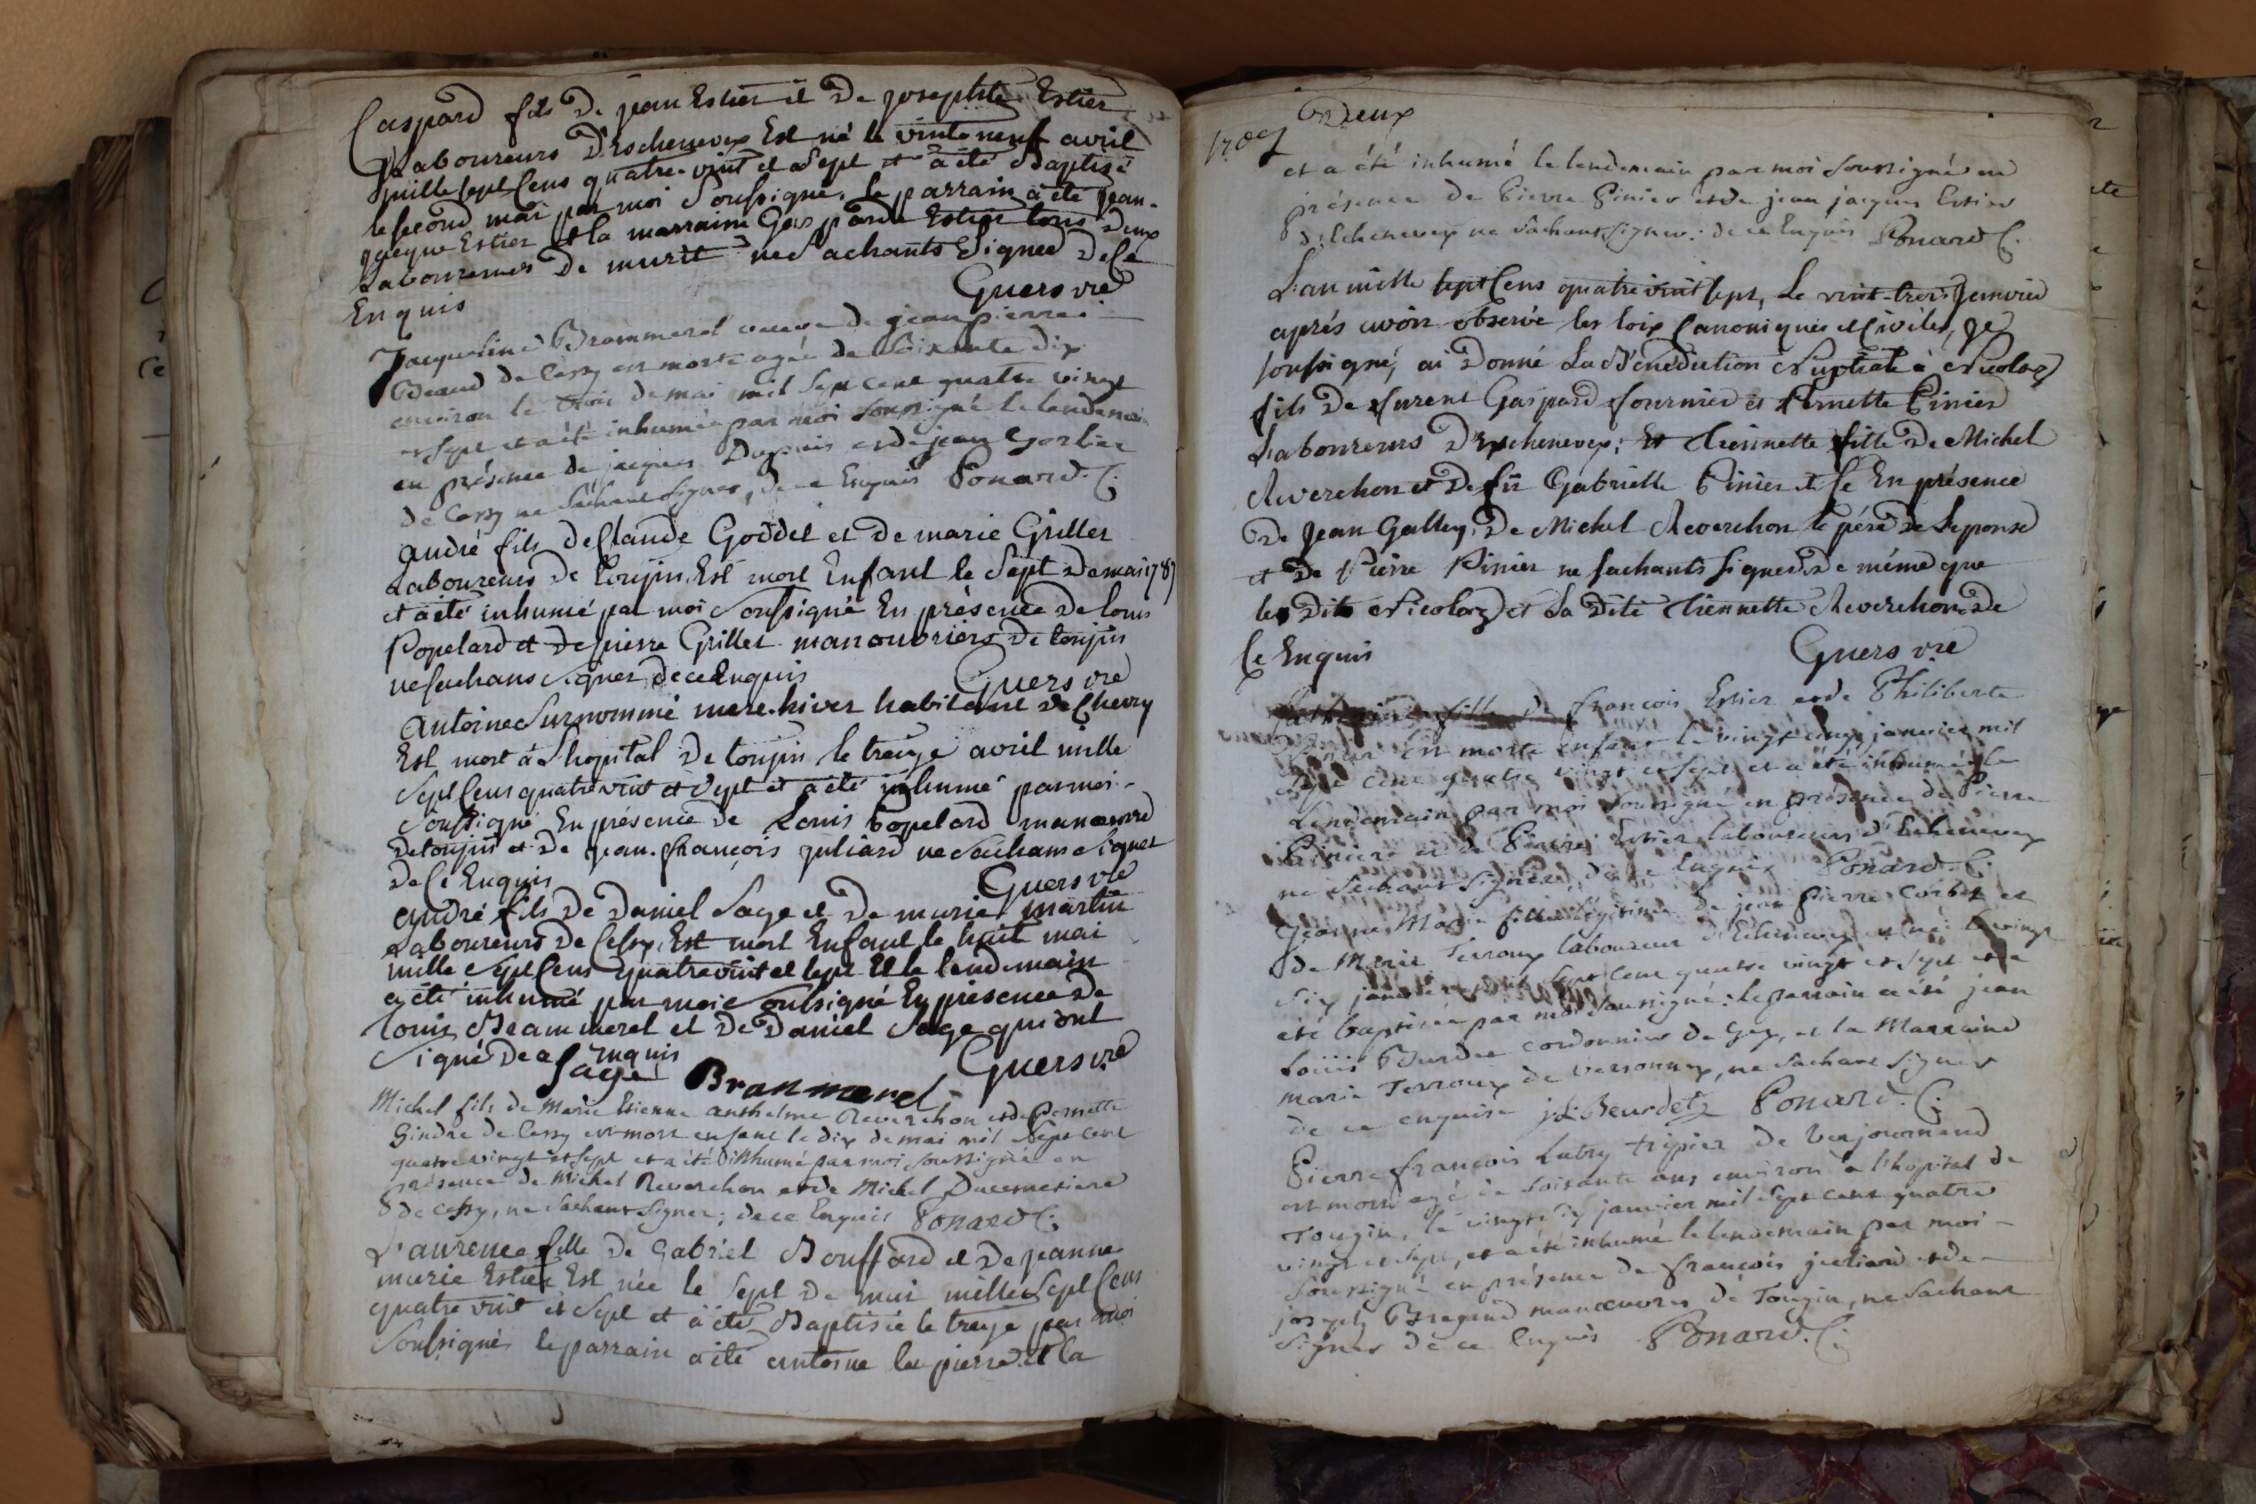 Gaspard fils De jean Estier et De josephte Estier
Laboureurs D'Eschenevex Est né le vintoneuf avril
mille sept Cens quatre-vint et Sept et a été Baptisé
le second mai par moi Soussigné, le parrain a été jean-
jacque Estier et la marraine Gasparde Estier tous Deux
Laboureurs De murit ne Sachants Signer De Ce
Enquis Guers vre
Jacqueline Brammerel veuve de jean pierre
Beaud de Cessy est morte agée de Soixante Dix
environ le trois de mai mil Sept cent quatre vingt
et Sept et a été inhumée par moi soussigné le lendemain
en présence de jacques Dupuis et de jean Gorlier
de Cessy ne Sachant Signer, de ce Enquis Ponard. C.
André fils de Claude Goddet et De marie Grillet
Laboureurs De tougin, Est mort Enfant le Sept De mai 1787
et a été inhumé par moi Soussigné En présence De Louis
Popelard et De pierre Grillet manouvriers De tougin
ne Sachans Signer de ce Enquis Guers vre
Antoine Surnommé mere-hiver habitant De Chevry
Est mort à L'hopital De tougin le treize avril mille
Sept Cens quatre vint et Sept et a été inhumé par moi-
Soussigné En présence De Louis Popelard manœuvre
De tougin et De jean-françois juliard ne Sachans Signer
De Ce Enquis Guers vre
André fils De Daniel Sage et De marie martin
Laboureurs De Cessy, Est mort Enfant le huit mai
mille Sept Cens quatre vint et Sept Et le lendemain
a été inhumé par moi Soussigné En présence De
Louis Brammerel et De Daniel Sage qui ont
Signé De ce Enquis Guers vre
Sage Branmerel
Michel fils de Marie Etienne anthelme Reverchon et de Pernette
Gindre de Cessy est mort enfant le dix de mai mil Sept cent
quatre vingt et Sept et a été inhumé par moi soussigné en
présence de Michel Reverchon et de Michel Ducemetiere
de Cessy, ne Sachant Signer; de ce Enquis Ponard C.
Laurence fille De Gabriel Bouffard et De jeanne
marie Estier Est née le Sept De mai mille Sept Cens
quatre vint et Sept et a été Baptisée le treize par moi
Soussigné le parrain a été antoine la pierre et la
Deux
et a été inhumé le lendemain par moi soussigné en
présence de Pierre Pinier et de jean jacques Estier
d'Echenevex ne Sachant Signer: de ce Enquis Ponard C.
L'an mille sept Cens quatre vint sept, Le vint-trois Janvier
aprés avoir observé les loix Canoniques et Civiles, je
soussigné, ai Donné La Bénédiction Nuptiale à Nicolaz
fils De furent Gaspard fournier et Pernette Pinier
Laboureurs D'Eschenevex; Et Tiennette fille De Michel
Reverchon et De fû Gabrielle Pinier et Ce En présence
De Jean Galley, De Michel Reverchon le pére De L'eponse
et De Pierre Pinier ne sachants signer, De méme que
les Dits Nicolaz et La Dite Tiennette Reverchon De
Ce Enquis Guers vre
fille de françois Estier et de Philiberte
Pinier est morte enfant le vingt cinq janvier mil
Sept cent quatre vingt et Sept et a été inhumée le
Lendemain par moi soussigné en présence de Pierre
Pinier et de Pierre Estier laboureurs d'Echenevex
ne Sachant Signer, de ce Enquis Ponard. C.
Jeanne Marie fille légitime de jean Pierre Corbet et
de Marie Terroux laboureur d'Echenevex est née le vingt
Six janvier mil Sept Cent quatre vingt et Sept et a
été baptisée par moi soussigné: le parrain a été jean
Louis Burdet cordonnier de Gex, et la Marraine
Marie Terroux de versonnex, ne Sachant Signer
de ce enquise j L: Beurdet Ponard. C.
Pierre françois Lutry tripier de
est mort agé de soixante ans environ a l'hopital de
Tougin, le vingt Six janvier mil Sept cent quatre
vingt et Sept, et a été inhumé le lendemain par moi-
Soussigné en présence de françois juliard et de-
joseph manœuvres de Tougin, ne Sachant
Signer de ce Enquis Ponard. C.